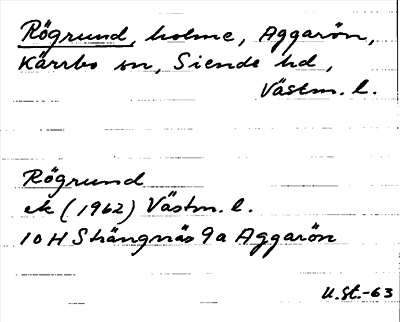 Rögrund, holme, Aggarön,
Kärrbo sn, Siende hd,
Västm. l.
Rögrund
ek (1962) Västm. l.
10H Strängnäs 9a Aggarön
U.St.-63